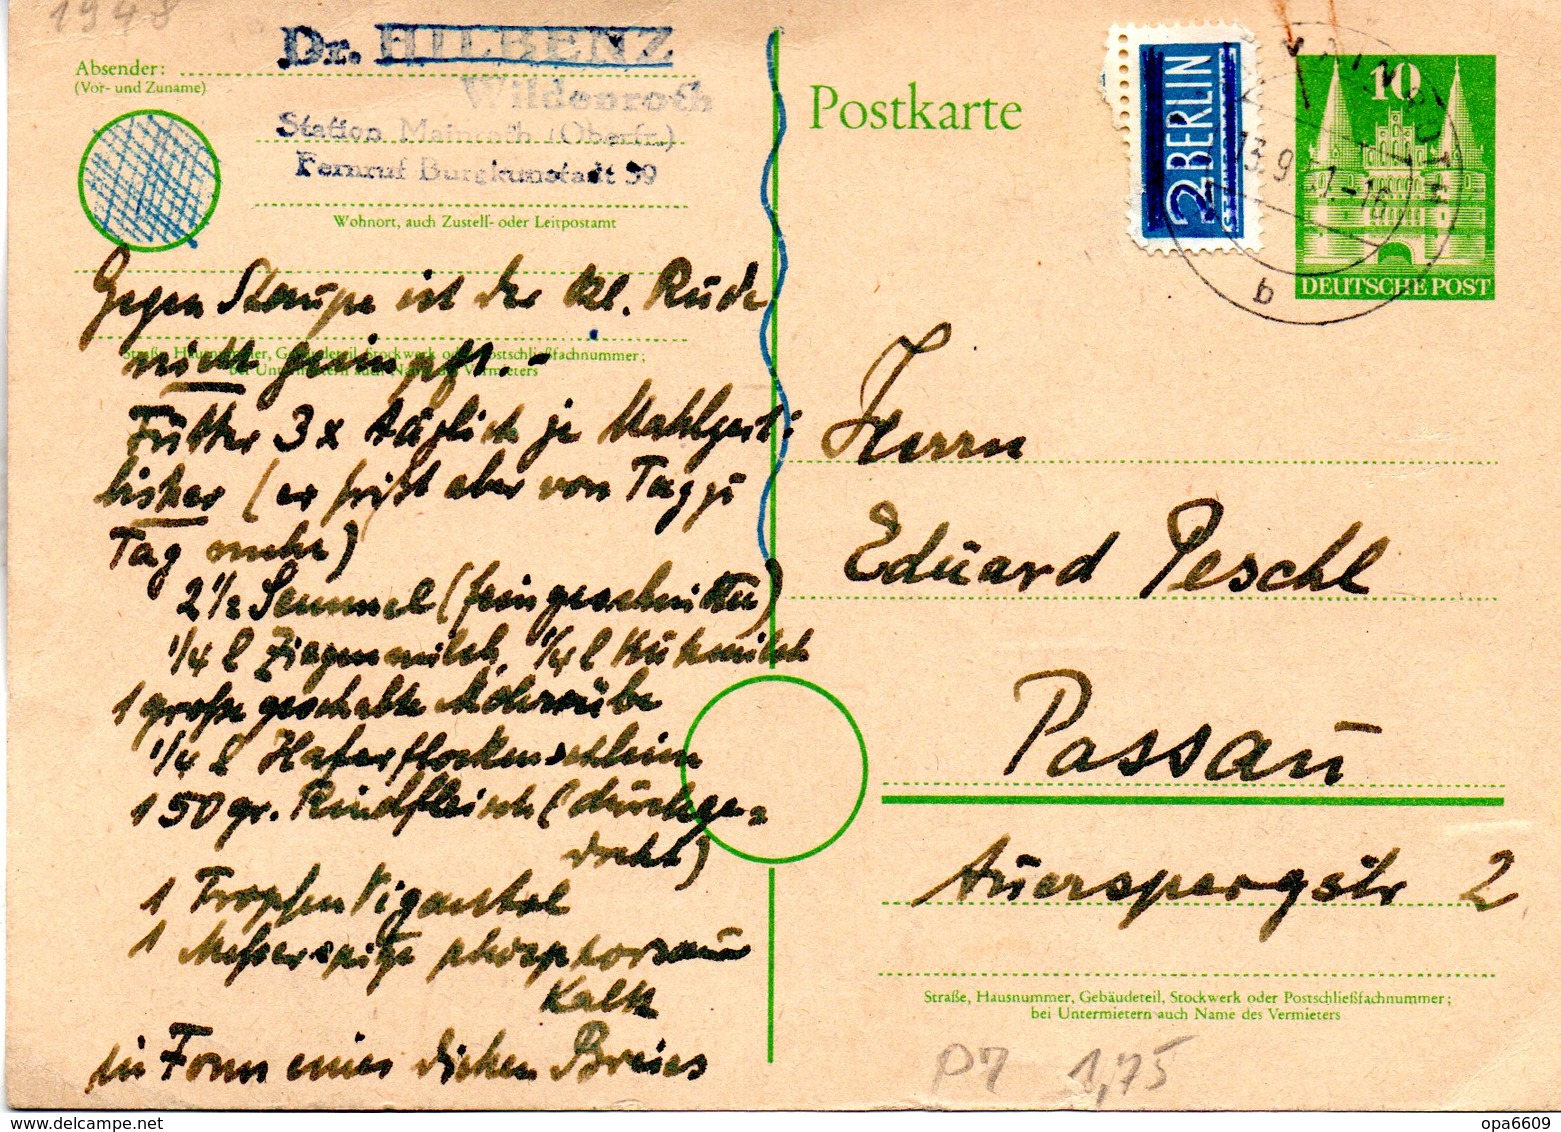 1948
Absender:
(Vor- und Zuname)
Dr. HILRENZ
Wildenroth
Station Mainroth (Oberfr.)
Fernruf Burgkunstadt 39
Wohnort, auch Zustell- oder Leitpostamt
Straße, Hausnummer, Gebäudeteil, Stockwerk oder Postschließfachnummer;
bei Untermietern auch Name des Vermieters
Gegen Staupe ist der kl. Rüde
nicht geimpft. –
Futter 3 x täglich je Mahlzeit:
bisher (er frißt aber von Tag zu
Tag mehr)
2 1/2 Semmel (feingeschnitten)
1/4 l Ziegenmilch, 1/4 l Kuhmilch
1 große geschabte Mohrrübe
1/4 l Haferflockenschleim
150 gr. Rindfleisch (durchge-
dreht)
1 Tropfen Vigantol
1 Messerspitze phosphorsaur
Kalk
in Form eines dicken Breies
Postkarte
2 BERLIN
STEUERMARKE
13.9
-16
b
10
DEUTSCHE POST
Herrn
Eduard Peschl
Passau
Auerspergstr 2
Straße, Hausnummer, Gebäudeteil, Stockwerk oder Postschließfachnummer;
bei Untermietern auch Name des Vermieters
P7 1,75
opa6609